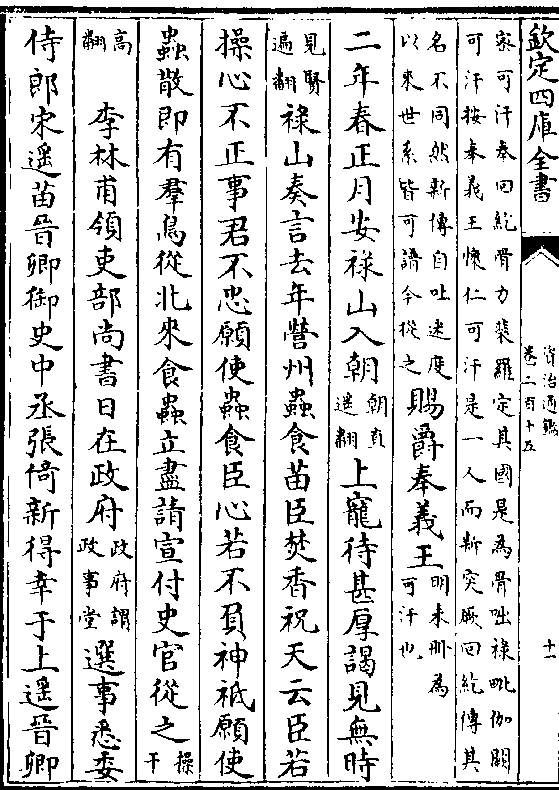 欽定四庫全書
資治通鑑
卷二百十五
十一
家可汗奉回紇骨力裴羅定其國是為骨咄祿毗伽闕
可汗按奉義王懷仁可汗是一人而新突厥回紇傳其
名不同然新傳自吐迷度
以來世系皆可譜今從之
賜爵奉義王
明未冊為
可汗也
二年春正月安祿山入朝
朝直
遙翻
上寵待甚厚謁見無時
見賢
遍翻
祿山奏言去年營州蟲食苗臣焚香祝天云臣若
操心不正事君不忠願使蟲食臣心若不負神祇願使
蟲散即有羣鳥從北來食蟲立盡請宣付史官從之
操
千
高
翻
李林甫領吏部尚書日在政府
政府謂
政事堂
選事悉委
侍郎宋遙苗晉卿御史中丞張倚新得幸于上遙晉卿